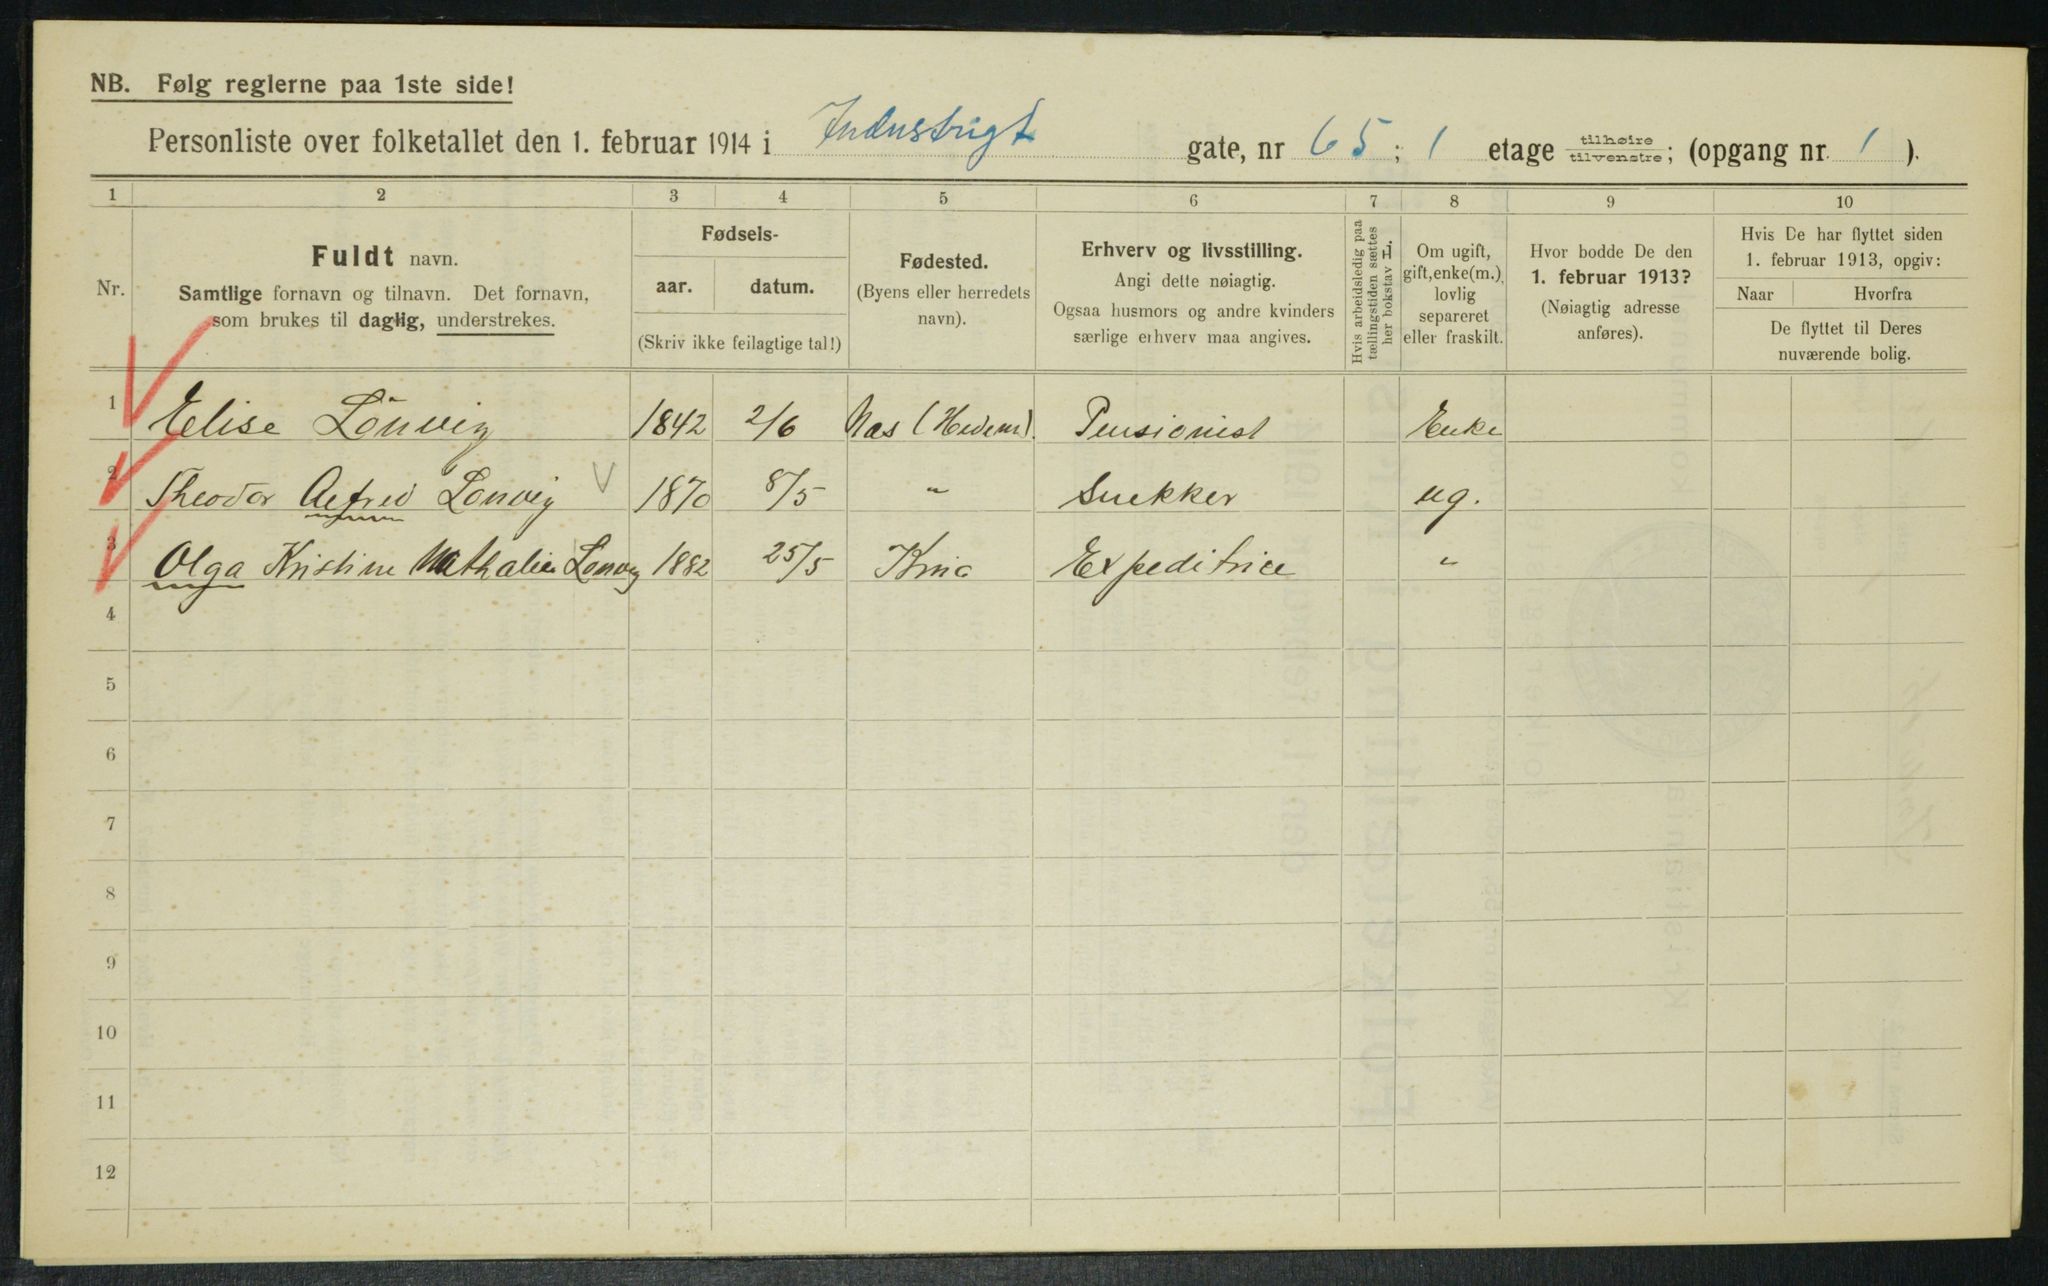 NB. Følg reglerne paa 1ste side!
Personliste over folketallet den 1. februar 1914 i Industrigt gate, nr 65 ; 1 etage tilhøire tilvenstre; (opgang nr. 1 ).
1 2 3 4 5 6 7 8 9 10
Nr.
Fuldt navn.
Samtlige fornavn og tilnavn. Det fornavn,
som brukes til daglig, understrekes.
Fødsels-
aar. datum.
(Skriv ikke feilagtige tal!)
Fødested.
(Byens eller herredets
navn).
Erhverv og livsstilling.
Angi dette nøiagtig.
Ogsaa husmors og andre kvinders
særlige erhverv maa angives.
Hvis arbeidsledig paa
tællingstiden sættes
her bokstav L.
Om ugift,
gift, enke(m.),
lovlig
separeret
eller fraskilt.
Hvor bodde De den
1. februar 1913?
(Nøiagtig adresse
anføres).
Hvis De har flyttet siden
1. februar 1913, opgiv:
Naar Hvorfra
De flyttet til Deres
nuværende bolig.
1 Elise Lönvig 1842 2/6 Nas (Hedem). Pensionist Enke
2 Theodor Alfred Lonvig 1870 8/5 " Snekker ug.
3 Olga Kristine Nathalie Lonvig 1882 25/5 Krna Expeditrice "
4
5
6
7
8
9
10
11
12